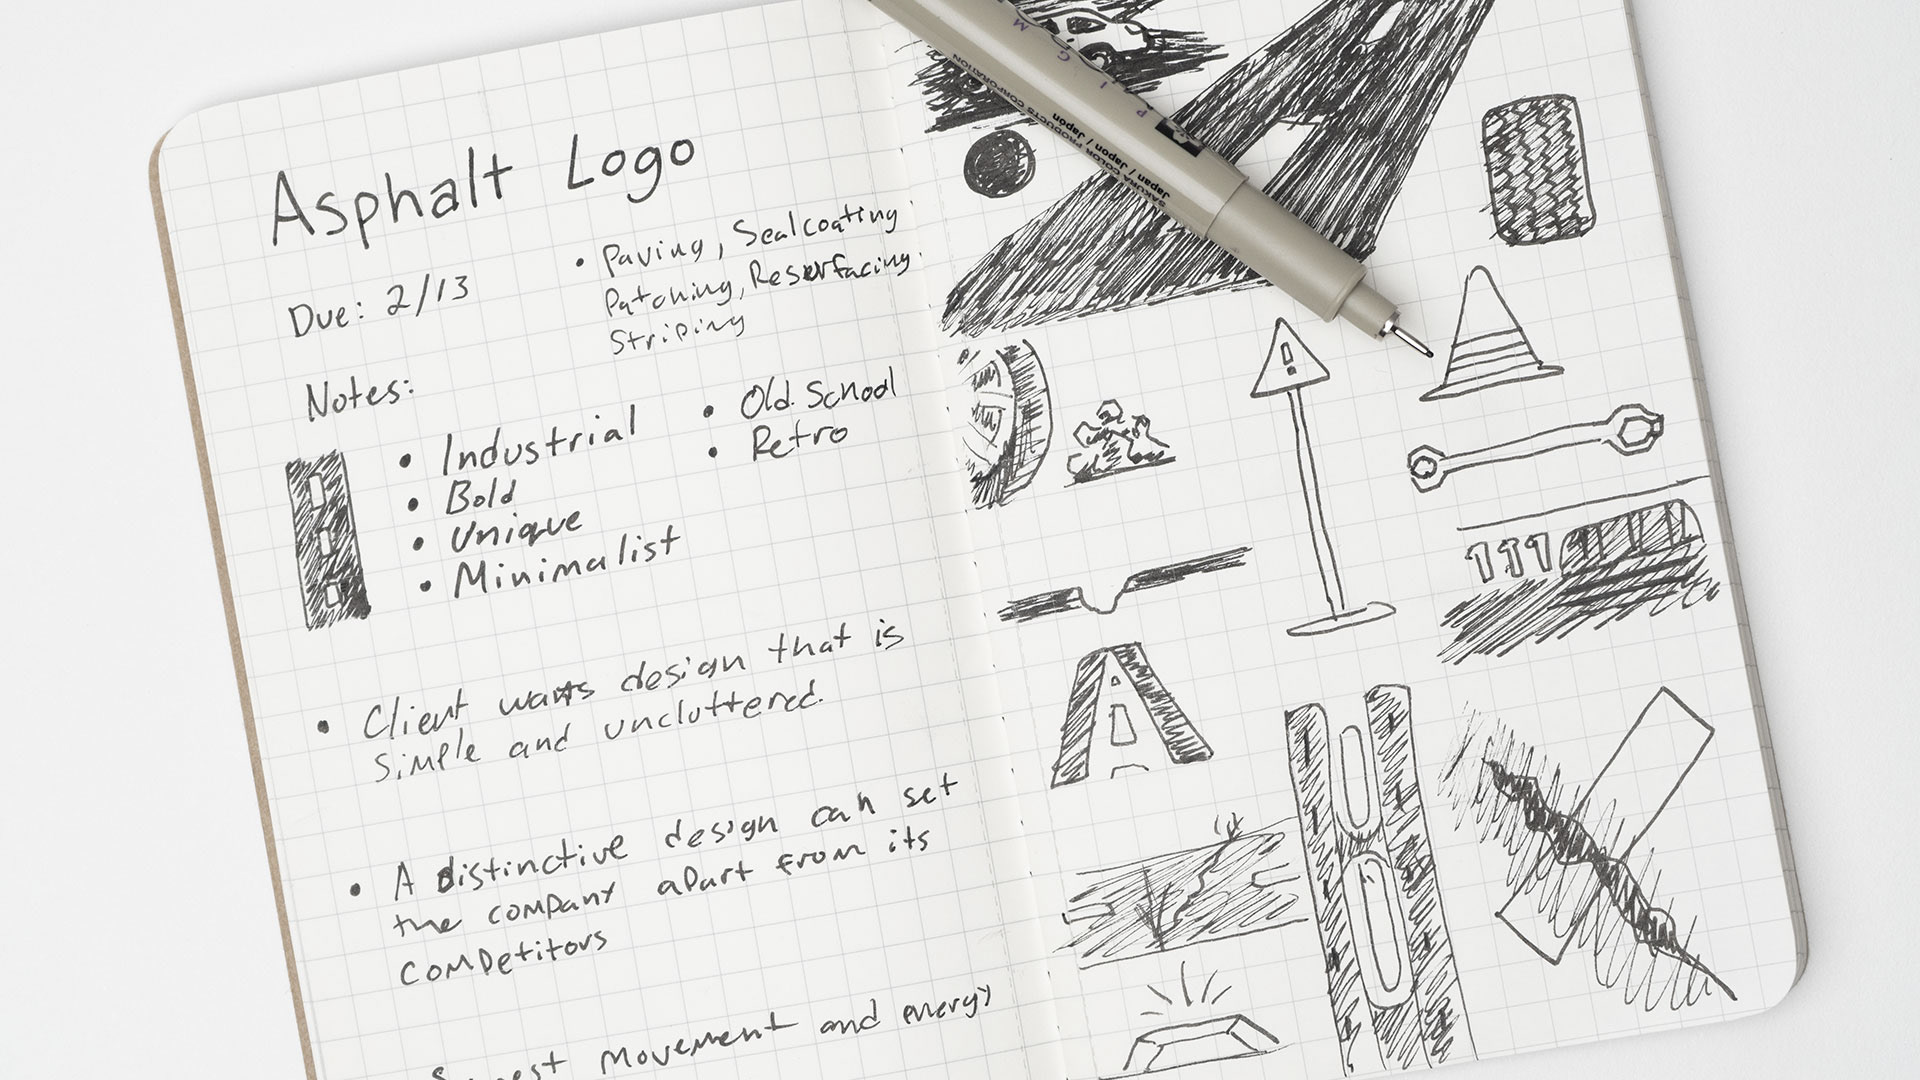 Asphalt Logo
Due: 2/13
• Paving, Sealcoating
Patching, Resurfacing
Striping
Notes:
• Industrial
• Bold
• Unique
• Minimalist
• Old School
• Retro
• Client wants design that is
simple and uncluttered.
• A distinctive design can set
the company apart from its
competitors
movement and energy
PIGM
SAKURA COLOR PRODUCTS CORPORATION
Japan / Japon